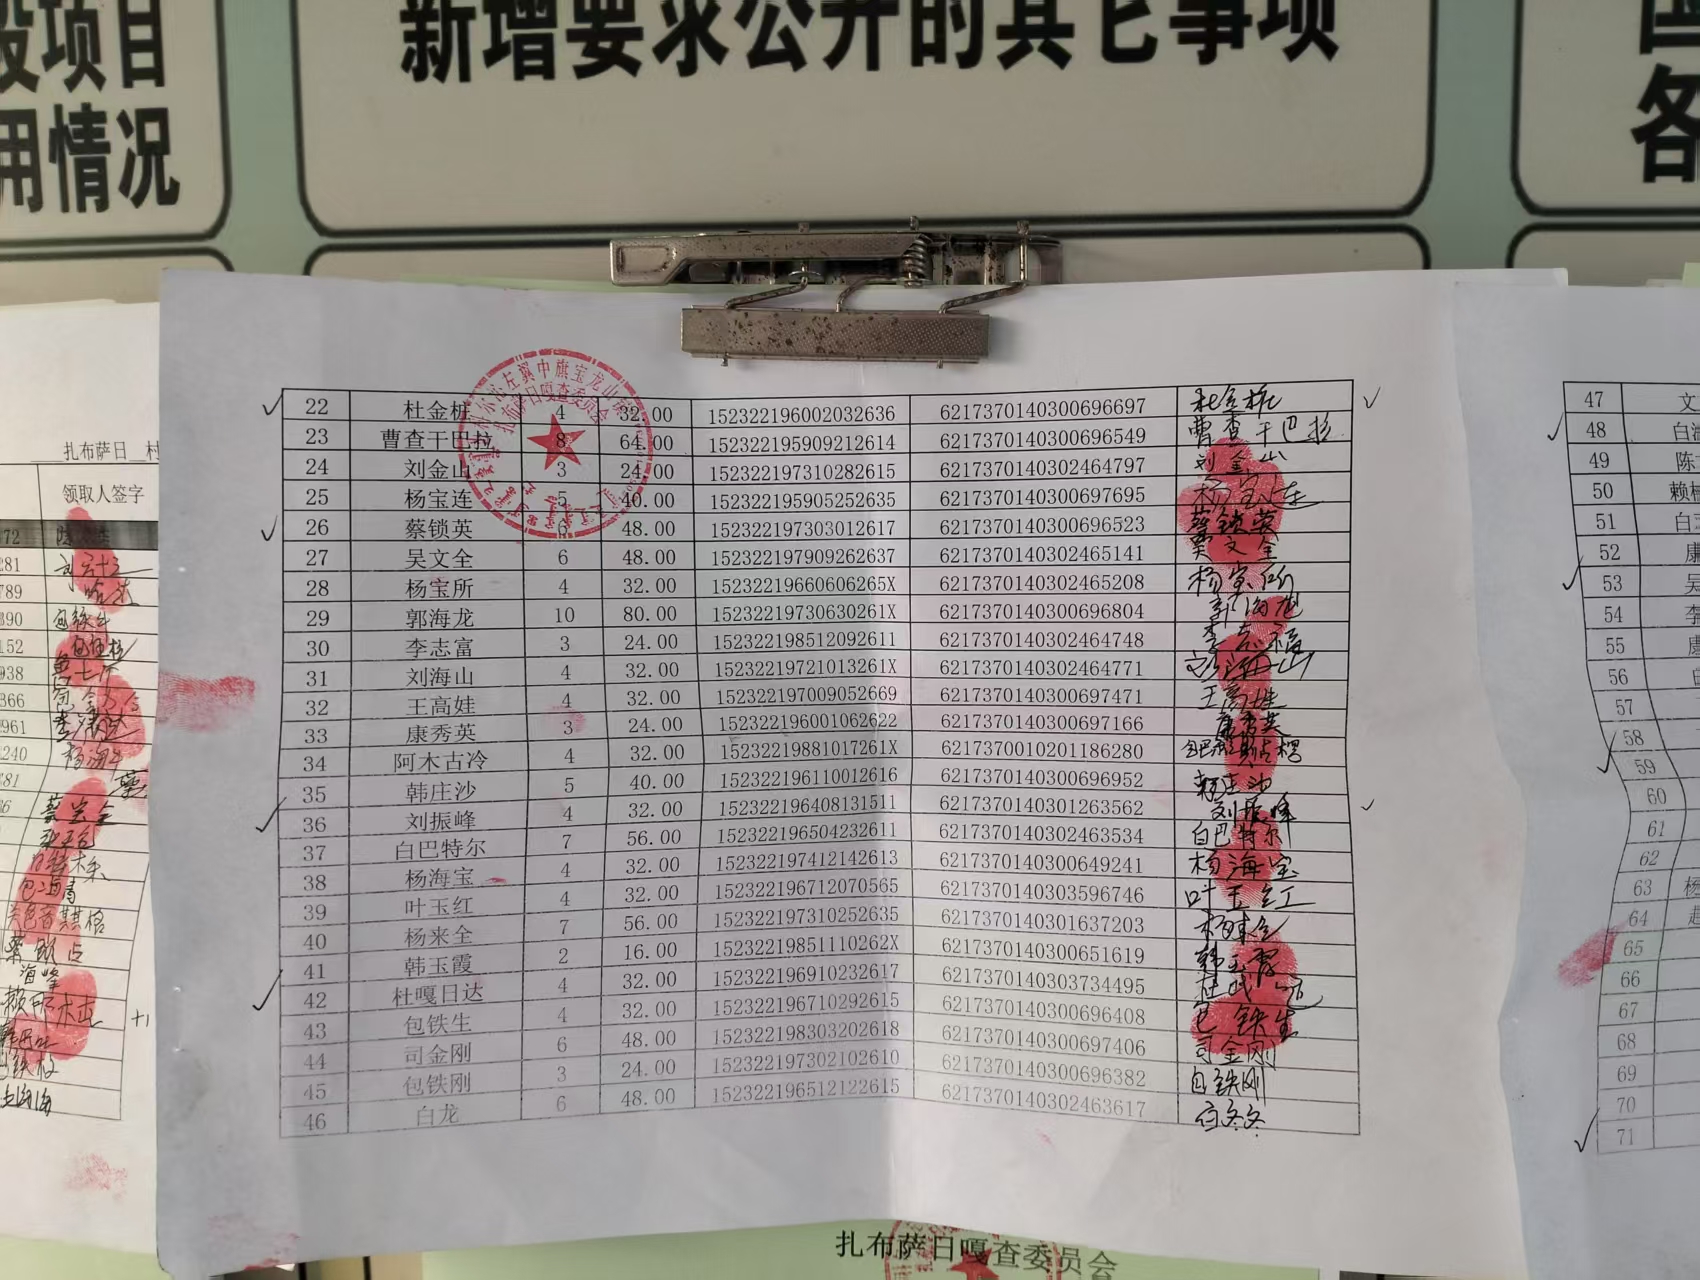 设项目
用情况
新增要求公开的其它事项
国
各
扎布萨日 村
领取人签字
22 杜金桩 4 32.00 152322196002032636 6217370140300696697 杜金桩
23 曹查干巴拉 8 64.00 152322195909212614 6217370140300696549 曹查干巴拉
24 刘金山 3 24.00 152322197310282615 6217370140302464797 刘金山
25 杨宝连 5 40.00 152322195905252635 6217370140300697695 杨宝连
26 蔡锁英 6 48.00 152322197303012617 6217370140300696523 蔡锁英
27 吴文全 6 48.00 152322197909262637 6217370140302465141 吴文全
28 杨宝所 4 32.00 15232219660606265X 6217370140302465208 杨宝所
29 郭海龙 10 80.00 15232219730630261X 6217370140300696804 郭海龙
30 李志富 3 24.00 152322198512092611 6217370140302464748
31 刘海山 4 32.00 15232219721013261X 6217370140302464771 刘海山
32 王高娃 4 32.00 152322197009052669 6217370140300697471 王高娃
33 康秀英 3 24.00 152322196001062622 6217370140300697166 康秀英
34 阿木古冷 4 32.00 15232219881017261X 6217370010201186280
35 韩庄沙 5 40.00 152322196110012616 6217370140300696952
36 刘振峰 4 32.00 152322196408131511 6217370140301263562 刘振峰
37 白巴特尔 7 56.00 152322196504232611 6217370140302463534 白巴特尔
38 杨海宝 4 32.00 152322197412142613 6217370140300649241 杨海宝
39 叶玉红 4 32.00 152322196712070565 6217370140303596746 叶玉红
40 杨来全 7 56.00 152322197310252635 6217370140301637203 杨来全
41 韩玉霞 2 16.00 15232219851110262X 6217370140300651619 韩玉霞
42 杜嘎日达 4 32.00 152322196910232617 6217370140303734495
43 包铁生 4 32.00 152322196710292615 6217370140300696408 包铁生
44 司金刚 6 48.00 152322198303202618 6217370140300697406 司金刚
45 包铁刚 3 24.00 152322197302102610 6217370140300696382 包铁刚
46 白龙 6 48.00 152322196512122615 6217370140302463617
47 文
48 白
49 陈
50 赖
51 白
52 康
53 吴
54 李
55
56 白
57
58
59
60
61
62
63 杨
64 赵
65
66
67
68
69
70
71
扎布萨日嘎查委员会